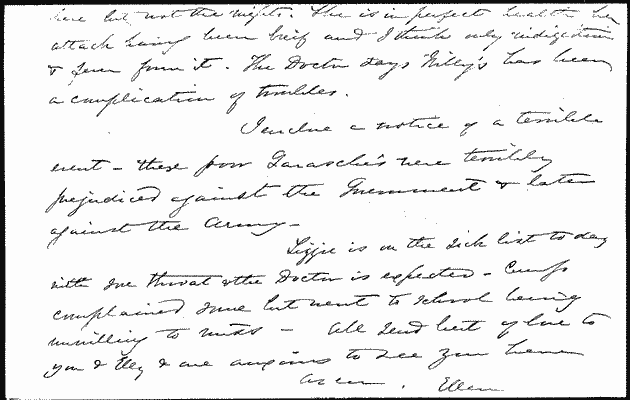 here but not the nights. She is in perfect health her
attack having been brief and I think only indigestion
& fever from it. The Doctor says Willy's has been
a complication of troubles.
I enclose a notice of a terrible
event - these poor were terribly
prejudiced against the Government & later
against the Army -
Lizzie is on the sick list to day
with sore throat & the Doctor is expected -
complained some but went to school being
unwilling to miss - All send best of love to
you & Elly & are anxious to see you home
as ever. Ellen